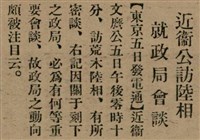 近衞公訪陸相
就政局會談
【東京五日發電通】近衞
文麿公五日午後零時十
分、訪荒木陸相、有所
密談、右記因關于剩下
之政局、必爲有何等重
要會談、故政局之動向
頗被注目云。